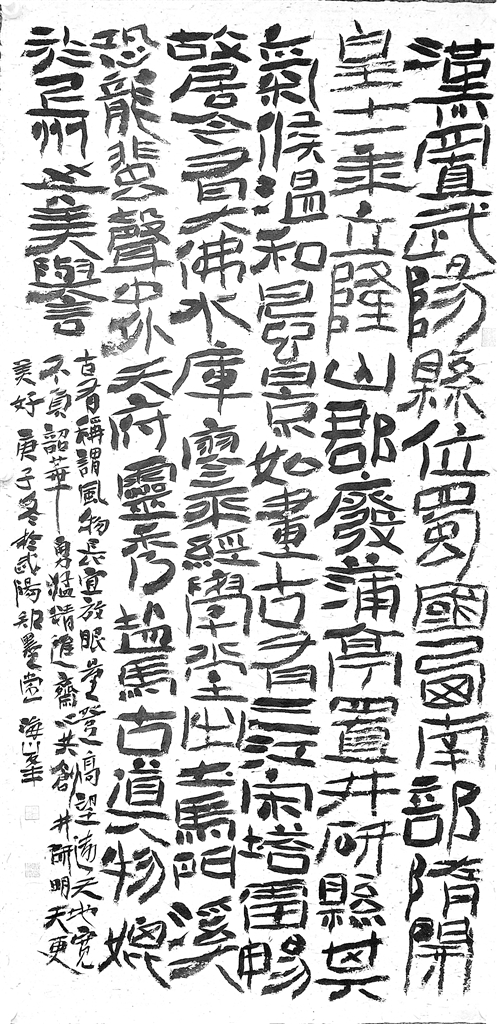 漢置武陽縣位蜀國西南部隋開
皇十一年立隆山郡廢蒲亭置井研縣其
氣候溫和風景如畫古有三江宋塔雷暢
故居今有大佛水庫廖平經學堂出土馬門溪
恐龍蜚聲中外天府靈秀鹽馬古道人物媲
於眉州之美譽
古有稱謂風物長宜放眼量登高望遠天地寬
不負韶華勇猛精進齊心共創井研明天更
美好 庚子冬於武陽 墨堂 海